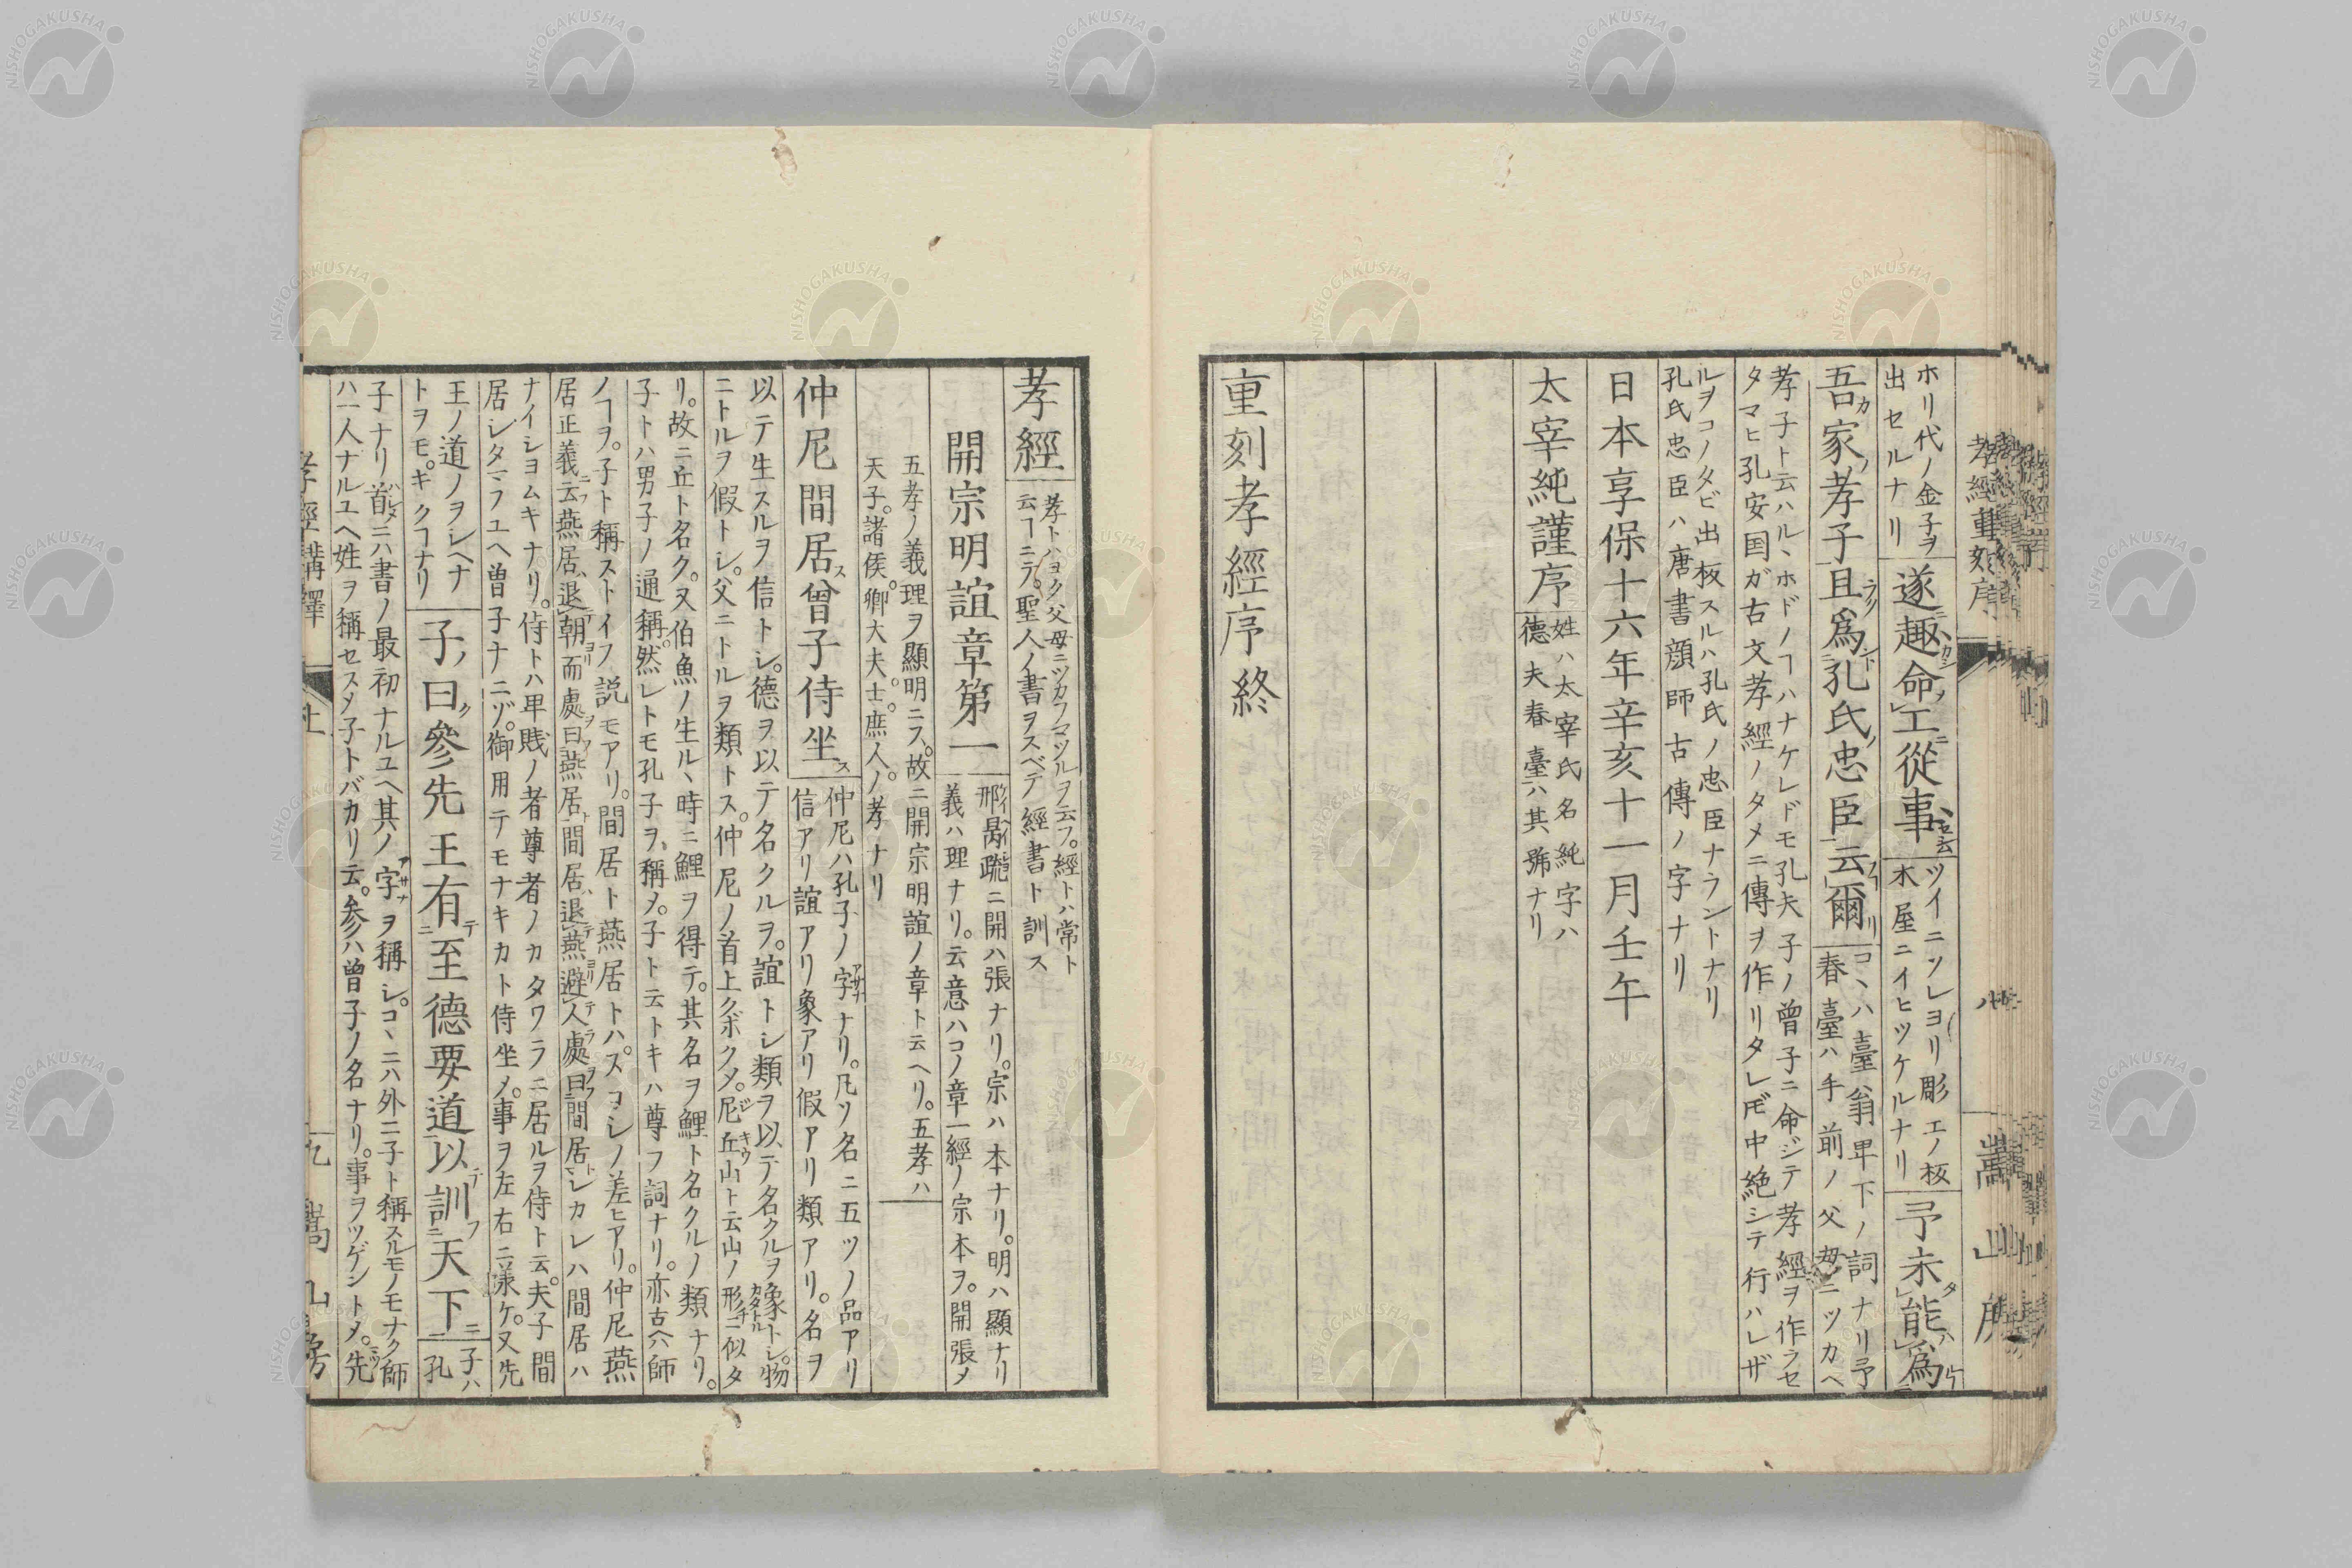 ホリ代ノ金子ヲ
出セルナリ
遂趣命工從事
ツイニソレヨリ彫工ノ板
木屋ニイヒツケルナリ
予未能爲
吾家孝子且爲孔氏忠臣云爾
コヽハ臺翁卑下ノ詞ナリ予
春臺ハ手前ノ父母ニツカヘ
孝子ト云ハルヽホドノヿハナケレドモ孔夫子ノ曽子ニ命ジテ孝經ヲ作ラセ
タマヒ孔安国ガ古文孝經ノタメニ傳ヲ作リタレ𪜈中絶シテ行ハレザ
ルヲコノタビ出板スルハ孔氏ノ忠臣ナラントナリ
孔氏忠臣ハ唐書顔師古傳ノ字ナリ
日本享保十六年辛亥十一月壬午
太宰純謹序
姓ハ太宰氏名純字ハ
德夫春臺ハ其號ナリ
重刻孝經序終
孝經
孝トハヨク父母ニツカフマツルヲ云フ。經トハ常ト
云ヿニテ。聖人ノ書ヲスベテ經書ト訓ス
開宗明誼章第一
邢昺䟽ニ開ハ張ナリ。宗ハ本ナリ。明ハ顯ナリ
義ハ理ナリ。云意ハコノ章一經ノ宗本ヲ。開張メ
五孝ノ義理ヲ顯明ニス。故ニ開宗明誼ノ章ト云ヘリ。五孝ハ
天子。諸侯。卿大夫。士。庶人。ノ孝ナリ
仲尼間居曾子侍坐
仲尼ハ孔子ノ字ナリ。凡ソ名ニ五ツノ品アリ
信アリ誼アリ象アリ假アリ類アリ。名ヲ
以テ生スルヲ信トシ。德ヲ以テ名クルヲ。誼トシ類ヲ以テ名クルヲ象トシ。物
ニトルヲ假トシ。父ニトルヲ類トス。仲尼ノ首上クボクメ。尼丘山ト云山ノ形チニ似タ
リ。故ニ丘ト名ク。又伯魚ノ生ルヽ時ニ鯉ヲ得テ。其名ヲ鯉ト名クルノ類ナリ。
子トハ男子ノ通稱。然レトモ孔子ヲ稱メ。子ト云トキハ尊フ詞ナリ。亦古ヘ師
ノヿヲ。子ト稱ストイフ説モアリ。間居ト燕居トハ。スコシノ差ヒアリ。仲尼燕
居正義云燕居、退朝而處曰燕居、間居、退燕避人處曰間居トシカレハ間居ハ
ナイショムキナリ。侍トハ卑賤ノ者尊者ノカタワラニ居ルヲ侍ト云。夫子間
居シタマフユヘ曽子ナニゾ。御用テモナキカト侍坐メ。事ヲ左右ニ羕ケ。又先
王ノ道ノヲシヘナ
トヲモ。キクヿナリ
子曰參先王有至德要道以訓天下
子ハ
孔
子ナリ首ニハ書ノ最初ナルユヘ其ノ字ヲ稱シ。コヽニハ外ニ子ト稱スルモノモナク師
ハ一人ナルユヘ姓ヲ稱セスメ子トバカリ云。參ハ曽子ノ名ナリ。事ヲツゲントメ。先
孝經講釋
上
九
嵩山房